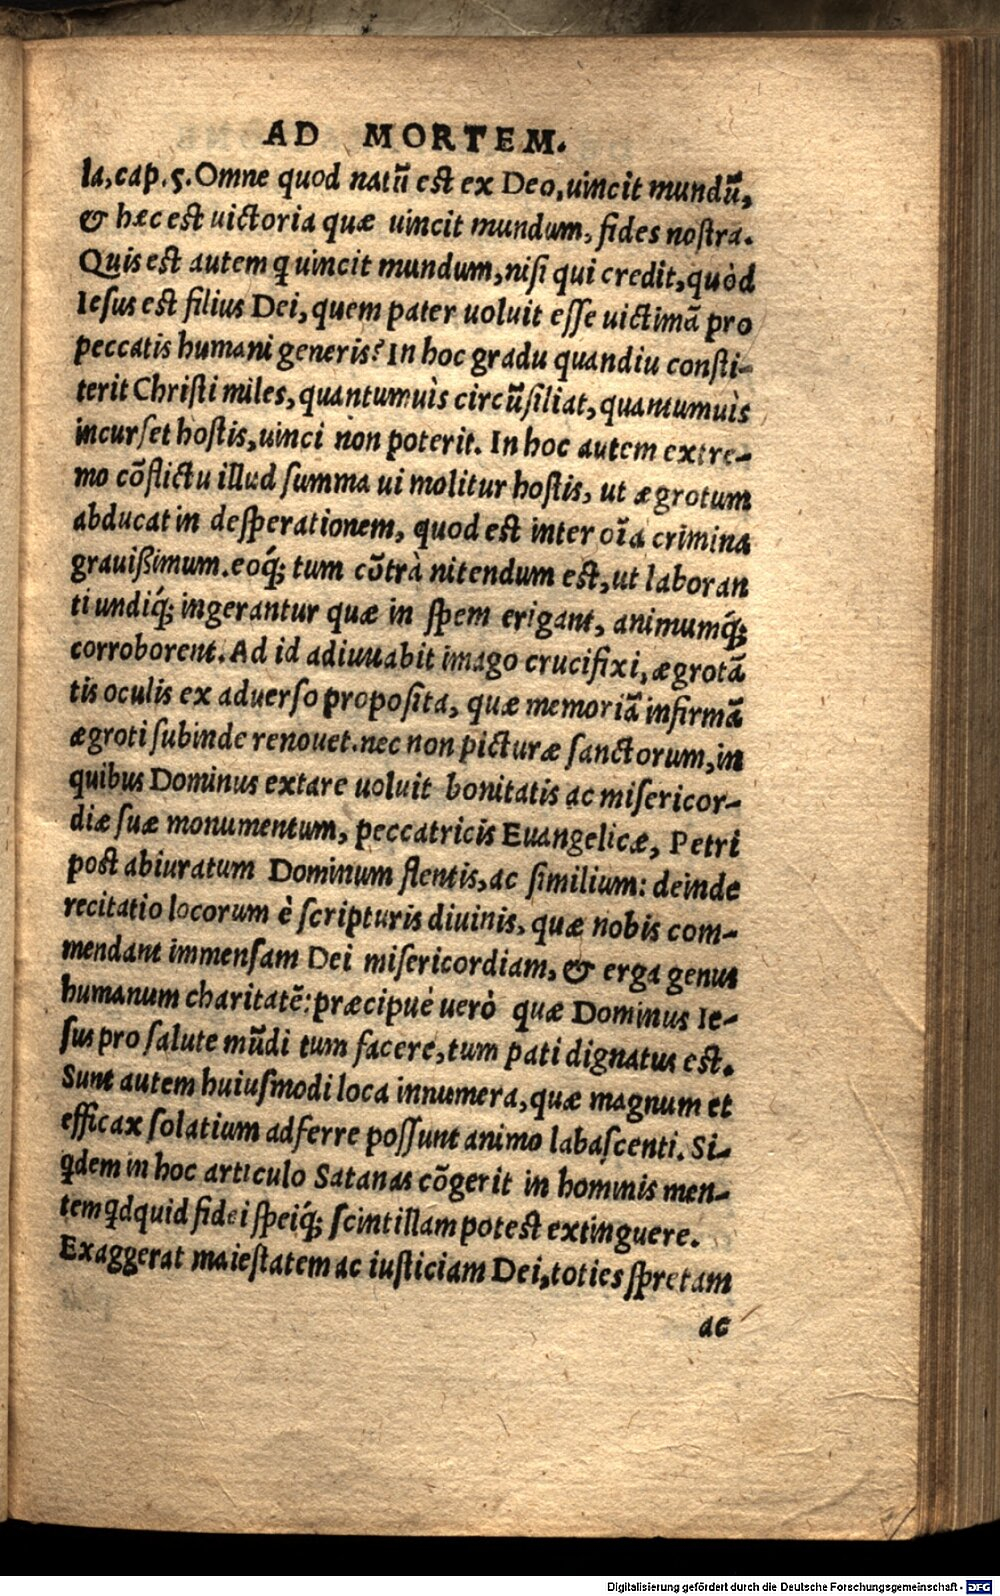 AD MORTEM.
la, cap. 5. Omne quod natũ est ex Deo, uincit mundũ,
& hæc est uictoria quæ uincit mundum, fides nostra.
Quis est autem q uincit mundum, nisi qui credit, quòd
Iesus est filius Dei, quem pater uoluit esse uictimã pro
peccatis humani generis? In hoc gradu quandiu consti-
terit Christi miles, quantumuìs circũsiliat, quantumuìs
incurset hostis, uinci non poterit. In hoc autem extre-
mo cõflictu illud summa ui molitur hostis, ut ægrotum
abducat in desperationem, quod est inter oĩa crimina
grauißimum. eoq́; tum cõtrà nitendum est, ut laboran
ti undiq́; ingerantur quæ in spem erigant, animumq́;
corroborent. Ad id adiuuabit imago crucifixi, ægrotã
tis oculis ex aduerso proposita, quæ memoriã infirmã
ægroti subinde renouet. nec non picturæ sanctorum, in
quibus Dominus extare uoluit bonitatis ac misericor-
diæ suæ monumentum, peccatricis Euangelicæ, Petri
post abiuratum Dominum flentis, ac similium: deinde
recitatio locorum è scripturis diuinis, quæ nobis com-
mendant immensam Dei misericordiam, & erga genus
humanum charitatẽ: præcipuè uerò quæ Dominus Ie-
sus pro salute mũdi tum facere, tum pati dignatus est.
Sunt autem huiusmodi loca innumera, quæ magnum et
efficax solatium adferre possunt animo labascenti. Si-
qdem in hoc articulo Satanas cõgerit in hominis men-
tem qdquid fidei speiq́; scintillam potest extinguere.
Exaggerat maiestatem ac iusticiam Dei, toties spretam
ac
Digitalisierung gefördert durch die Deutsche Forschungsgemeinschaft - DFG